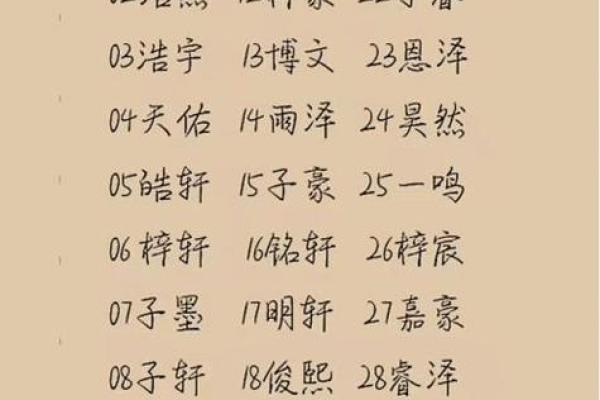 03浩宇 13博文 23恩泽
04天佑 14雨泽 24昊然
05皓轩 15子豪 25一鸣
06梓轩 16铭轩 26梓宸
07子墨 17明轩 27嘉豪
08子轩 18俊熙 28睿泽